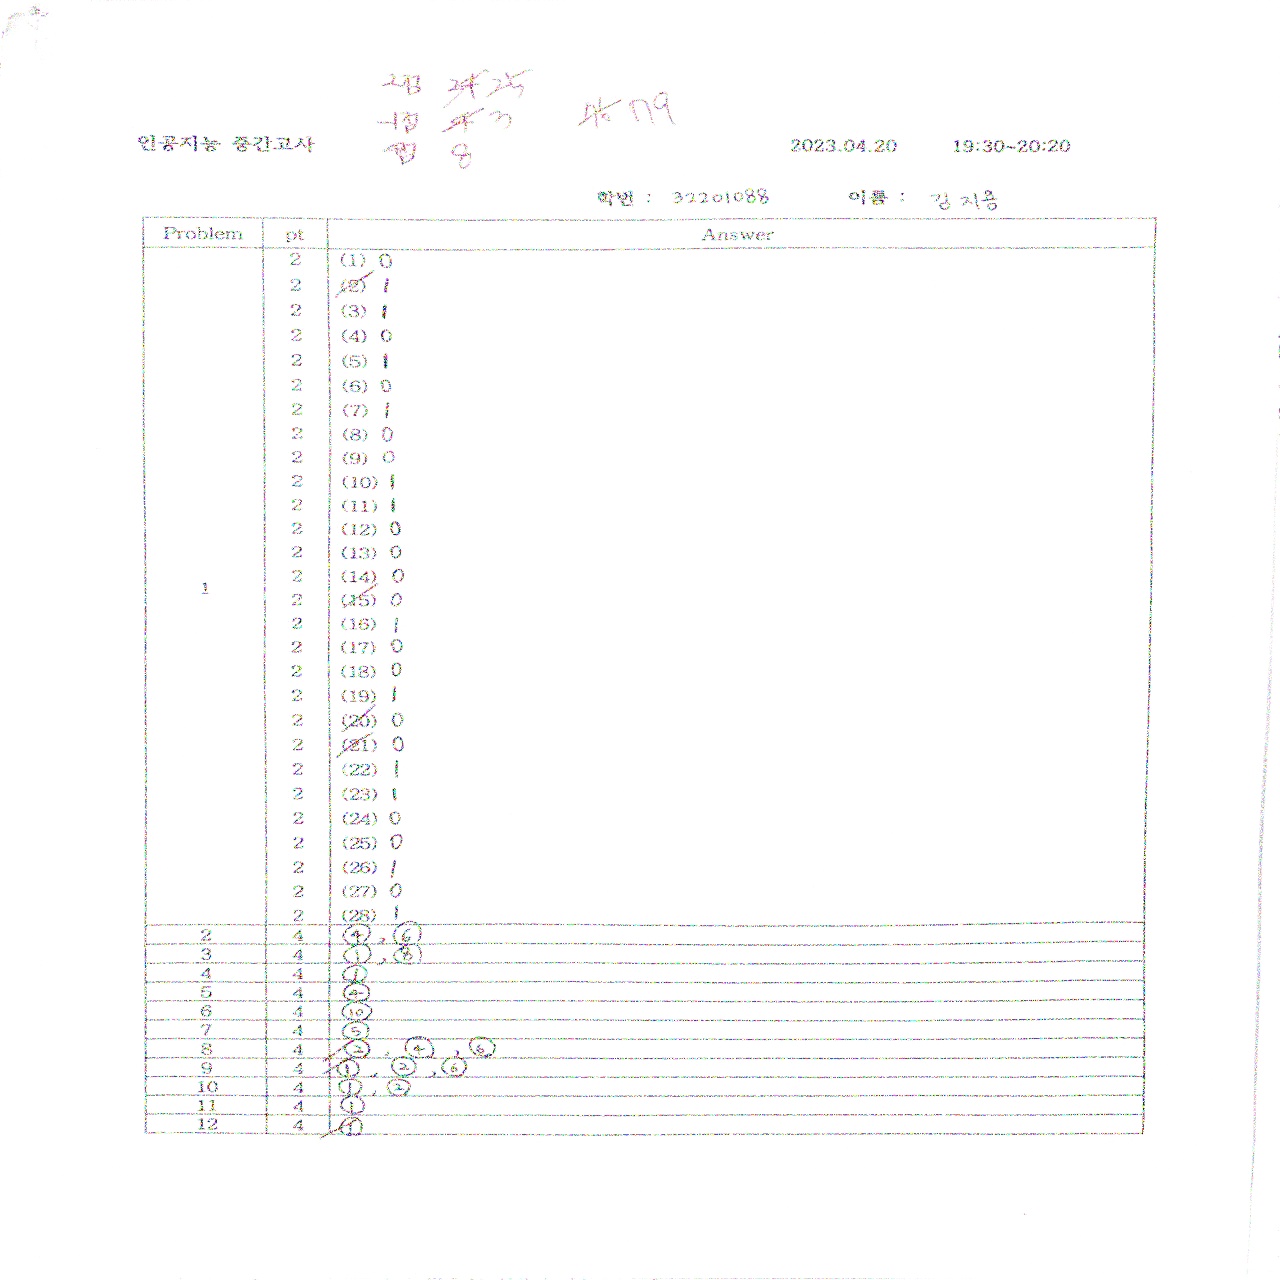 2점 24 25
-1점 4 3
4점 8
79
인공지능 중간고사 2023.04.20 19:30~20:20
학번 : 32201088 이름 : 김지응
Problem pt Answer
2 (1) 0
2 (2) 1
2 (3) 1
2 (4) 0
2 (5) 1
2 (6) 0
2 (7) 1
2 (8) 0
2 (9) 0
2 (10) 1
2 (11) 1
2 (12) 0
2 (13) 0
2 (14) 0
1 2 (15) 0
2 (16) 1
2 (17) 0
2 (18) 0
2 (19) 1
2 (20) 0
2 (21) 0
2 (22) 1
2 (23) 1
2 (24) 0
2 (25) 0
2 (26) 1
2 (27) 0
2 (28) 1
2 4 ④, ⑥
3 4 ①, ⑧
4 4 ①
5 4 ④
6 4 ⑩
7 4 ⑤
8 4 ②, ④, ⑥
9 4 ①, ②, ⑥
10 4 ①, ②
11 4 ①
12 4 ①